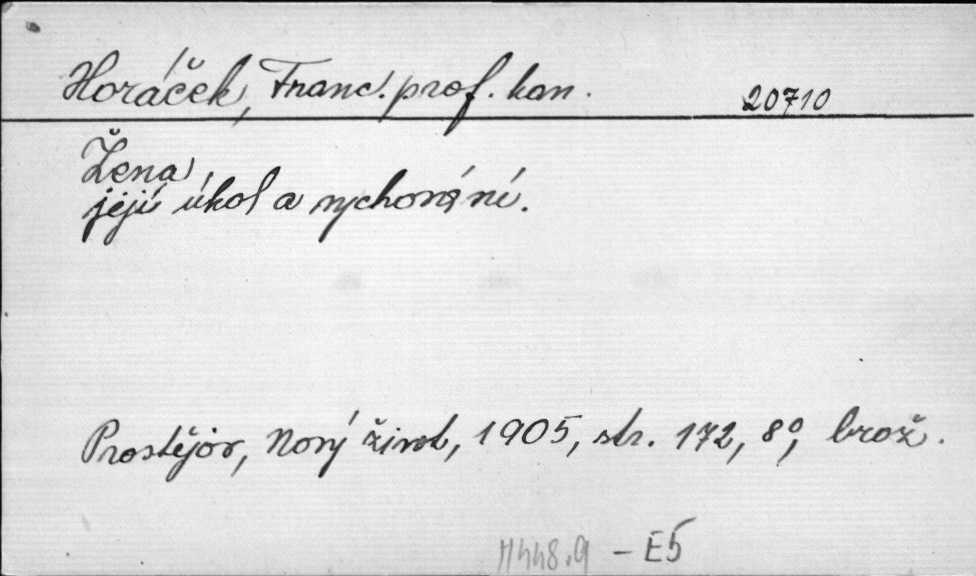 Horáček, Franc. prof. kan. 20710
Žena,
její úkol a vychování.
Prostějov, Nový život, 1905, str. 172, 8°, brož.
H448.9 - E5